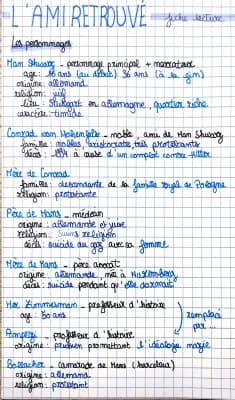 L'AMI RETROUVÉ
fiche lecture
Les personnages
Hans Shwarz - personnage principal + narrateur
age : 16 ans (au début) 36 ans (à la fin)
origine : allemand
religion : juif
lieu : Stuttgart en allemagne, quartier riche
caractère : timide
Conrad von Hohenfels - noble, ami de Hans Shwarz
famille : nobles, aristocrates très protestants
décès : à cause d'un complot contre Hitler
Mère de Conrad
famille : descendante de la famille royal de Pologne
religion : protestante
Père de Hans - médecin
origine : allemande et juive
religion : sans religion
décès : suicide au gaz avec sa femme
Mère de Hans - père avocat
origine : allemande, née à Nuremberg
décès : suicide pendant qu'elle dormait
Herr Zimmermann - professeur d'histoire
age : 50 ans
remplacé
par ...
Pompetzki - professeur d'histoire
origine : prussien promettant l'idéologie nazie
Bollacher - camarade de Hans (harceleur)
origine : allemand
religion : protestant